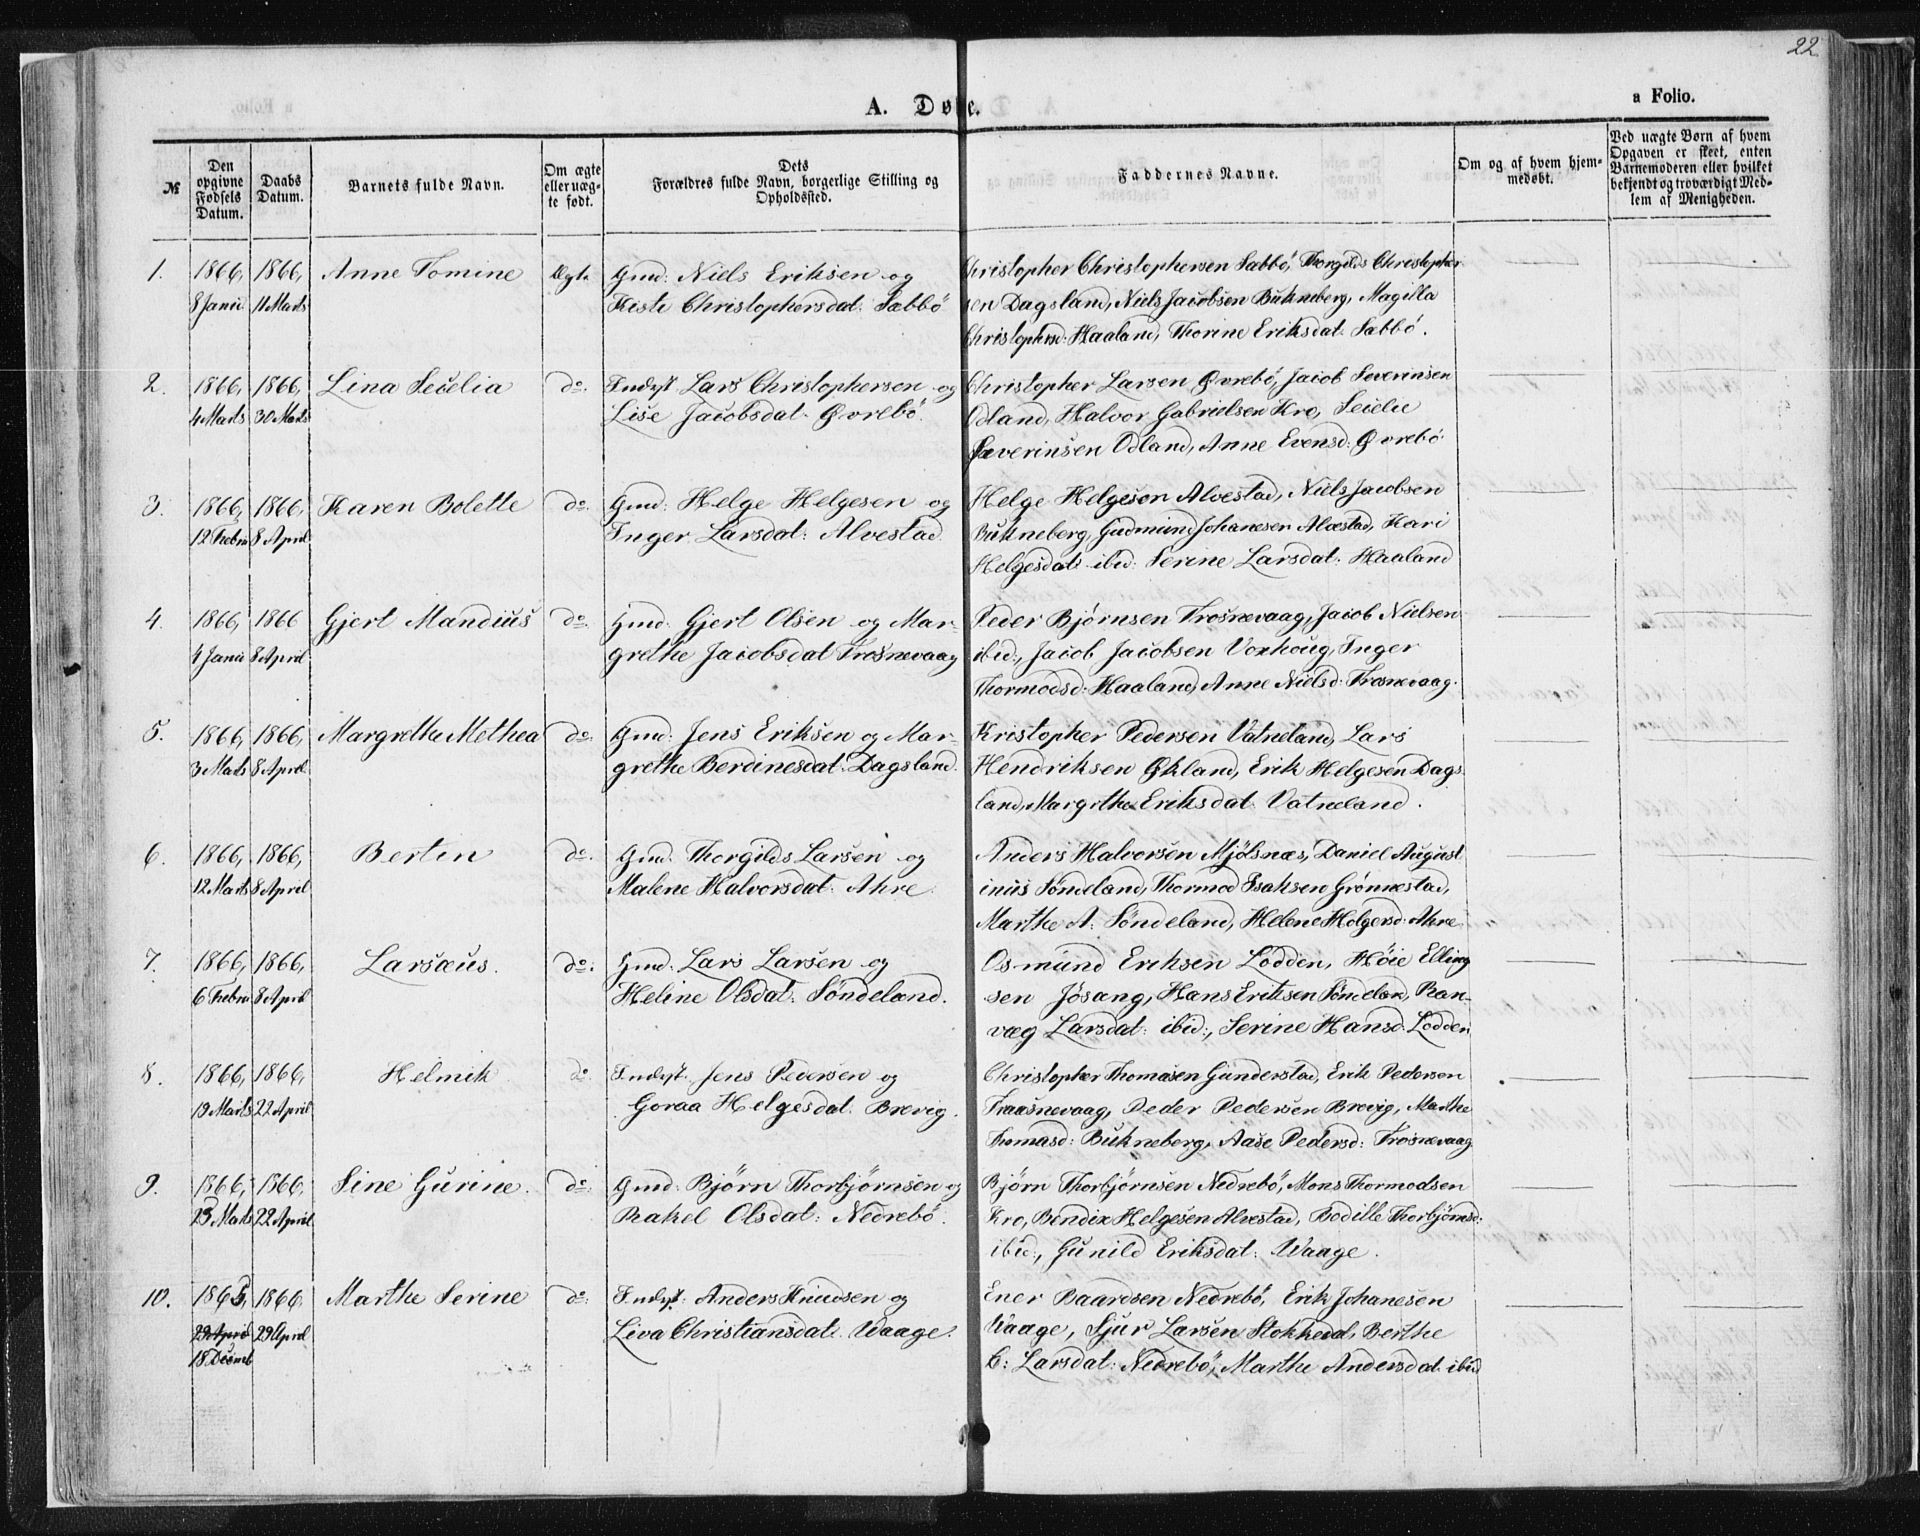 22
A. Døbte.
a Folio.
№
Den opgivne Fødsels Datum.
Daabs Datum.
Barnets fulde Navn.
Om ægte eller uægte født.
Dets Forældres fulde Navn, borgerlige Stilling og Opholdssted.
Faddernes Navne.
Om og af hvem hjemmedøbt.
Ved uægte Børn af hvem Opgaven er skeet, enten Barnemoderen eller hvilket bekjendt og troværdigt Medlem af Menigheden.
1. 1866, 1866, Anne Tomine Ægte Gmd: Niels Eriksen og Christopher Christophersen Sæbbö, Thorgilds Christopher
8 Janu 11 Marts Kisti Christophersdat: Sæbbö sen Dagsland, Niels Jacobsen Bukneberg, Magilla
Christophersd: Haaland, Thorine Eriksdat: Sæbbö.
2. 1866, 1866, Lina Secelia do. Indst Lars Christophersen og Christopher Larsen Øvrebö, Jacob Severinsen
4 Marts 30 Marts Lise Jacobsdat: Øvrebö. Odland, Halvor Gabrielsen Kro, Seielie
Severinsen Odland, Anne Evensd: Øvrebö
3. 1866, 1866, Karen Bolette do. Gmd: Helge Helgesen og Helge Helgeson Alvestad, Niels Jacobsen
12 Febru 8 April Inger Larsdat: Alvestad. Bukneberg, Gudmund Johanesen Alvestad, Kari
Helgesdat: ibid: Serine Larsdat: Haaland
4. 1866, 1866 Gjert Mandius do. Gmd: Gjert Olsen og Mar- Peder Bjørnsen Trosnevaag, Jacob Nielsen
4 Janu 8 April grethe Jacobsdat Trosnevaag ibid:, Jacob Jacobsen Voxhoug, Inger
Thormodsd: Haaland, Anne Nielsd: Trosnevaag.
5. 1866, 1866, Margrethe Methea do. Gmd: Jens Eriksen og Mar- Kristopher Pedersen Vatneland, Lars
3 Marts 8 April grethe Berdinesdat: Dagsland. Hendriksen Økland, Erik Helgesen Dags-
land, Margrethe Eriksdat: Vatneland.
6. 1866, 1866, Bertin do. Gmd: Thorgilds Larsen og Anders Halvorsen Mjølsnæs, Daniel August
12 Marts 8 April Malene Halvorsdat: Ahre. inus Söndeland, Thormod Isaksen Grönnestad,
Marthe A: Söndeland, Helene Holgersd: Ahre.
7. 1866, 1866, Larsæus. do. Gmd: Lars Larsen og Osmund Eriksen Lodden, Höie Elling
6 Febru 8 April Heline Olsdat: Söndeland. sen Jösang, Hans Eriksen Söndeland, Ran-
væg Larsdat: ibid:, Serine Hansd: Lodden
8. 1866, 1866, Helmik do. Indst: Jens Pedersen og Christopher Thomasen Gunderstad, Erik Pedersen
19 Marts 22 April Goraa Helgesdat: Brevig. Traasnevaag, Peder Pedersen Brevig, Marthe
Thomasd: Bukneberg, Aase Pedersd: Trosnevaag
9. 1866, 1866, Sine Gurine. do. Gmd: Bjørn Thorbjørnsen og Bjørn Thorbjørnsen Nedrebö, Mons Thormodsen
23 Marts 22 April Rakel Olsdat: Nedrebö. Kro, Bendix Helgesen Alvestad, Bodille Thorbjørnsd:
ibid:, Gunild Eriksdat: Waage.
10. 1865, 1866, Marthe Serine do. Indst: Anders Knudsen og Ener Baardsen Nedrebö, Erik Johanesen
29 April 29 April Liva Christiansdat: Waage. Waage, Sjur Larsen Stokkedal, Berthe
18 Decmb B: Larsdat: Nedrebö, Marthe Andersdat: ibid